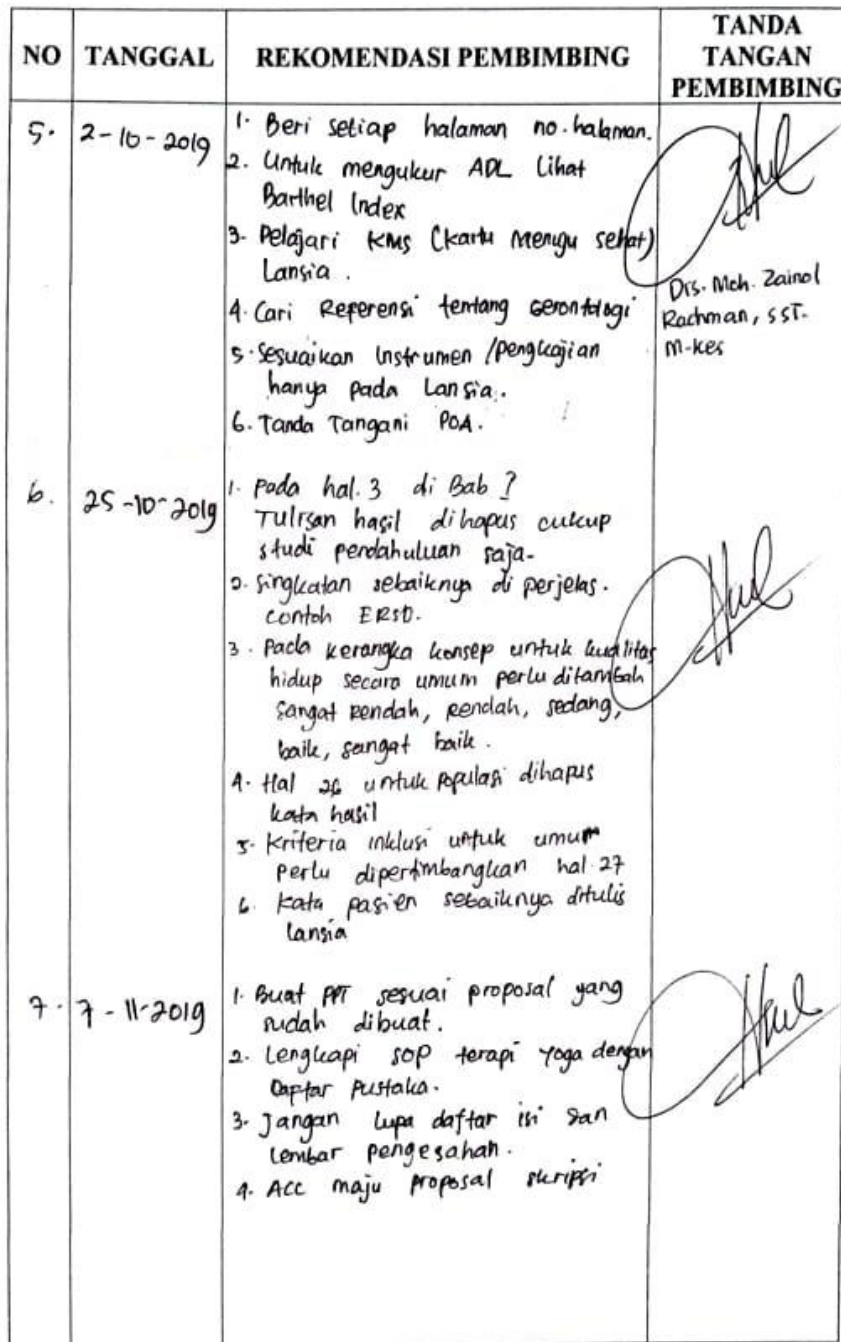 NO TANGGAL REKOMENDASI PEMBIMBING TANDA TANGAN PEMBIMBING
5. 2-10-2019
1. Beri setiap halaman no. halaman.
2. Untuk mengukur ADL Lihat
Barthel Index
3. Pelajari KMS (kartu Menuju sehat)
Lansia.
4. Cari Referensi tentang Gerontologi
5. Sesuaikan Instrumen /pengkajian
hanya pada Lansia.
6. Tanda Tangani POA.
Drs. Moh. Zainol
Rachman, SST.
M-kes
6. 25-10-2019
1. Pada hal. 3 di Bab ?
Tulisan hasil dihapus cukup
studi pendahuluan saja.
2. Singkatan sebaiknya di perjelas.
contoh ERSD.
3. Pada kerangka konsep untuk kualitas
hidup secara umum perlu ditambah
sangat rendah, rendah, sedang,
baik, sangat baik.
4. Hal 26 untuk populasi dihapus
kata hasil
5. Kriteria inklusi untuk umum
perlu dipertimbangkan hal 27
6. Kata pasien sebaiknya ditulis
lansia
7. 7-11-2019
1. Buat PPT sesuai proposal yang
sudah dibuat.
2. Lengkapi SOP terapi Yoga dengan
Daftar Pustaka.
3. Jangan lupa daftar isi dan
lembar pengesahan.
4. ACC maju proposal skripsi